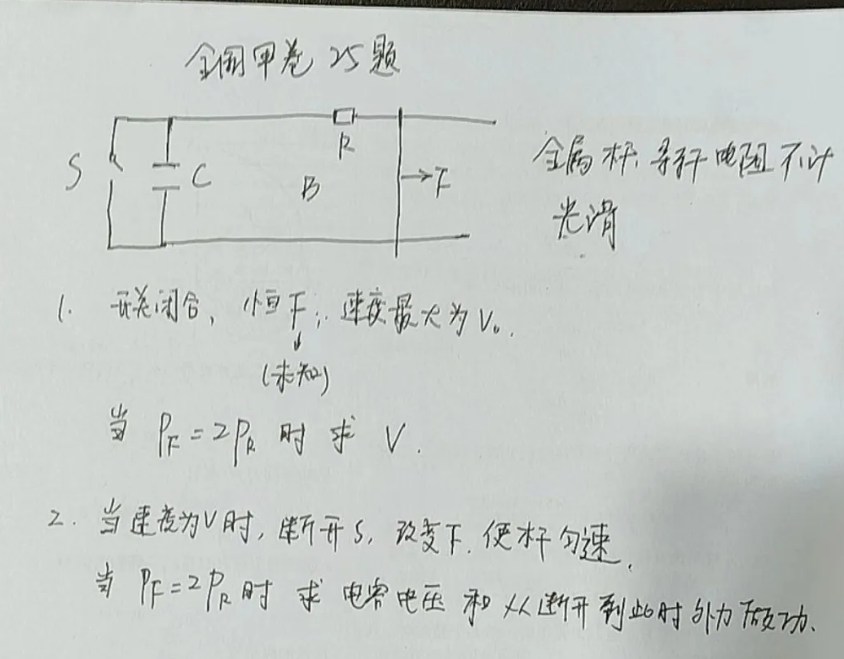 全国甲卷 25题
S
C
R
B
F
金属杆、导杆电阻不计
光滑
1. 开关闭合, 恒F, 速度最大为V₀.
(未知)
当 P_F=2P_R 时 求 V.
2. 当速度为V时, 断开S, 改变F, 使杆匀速.
当 P_F=2P_R 时 求 电容电压 和 从断开到此时外力做功.